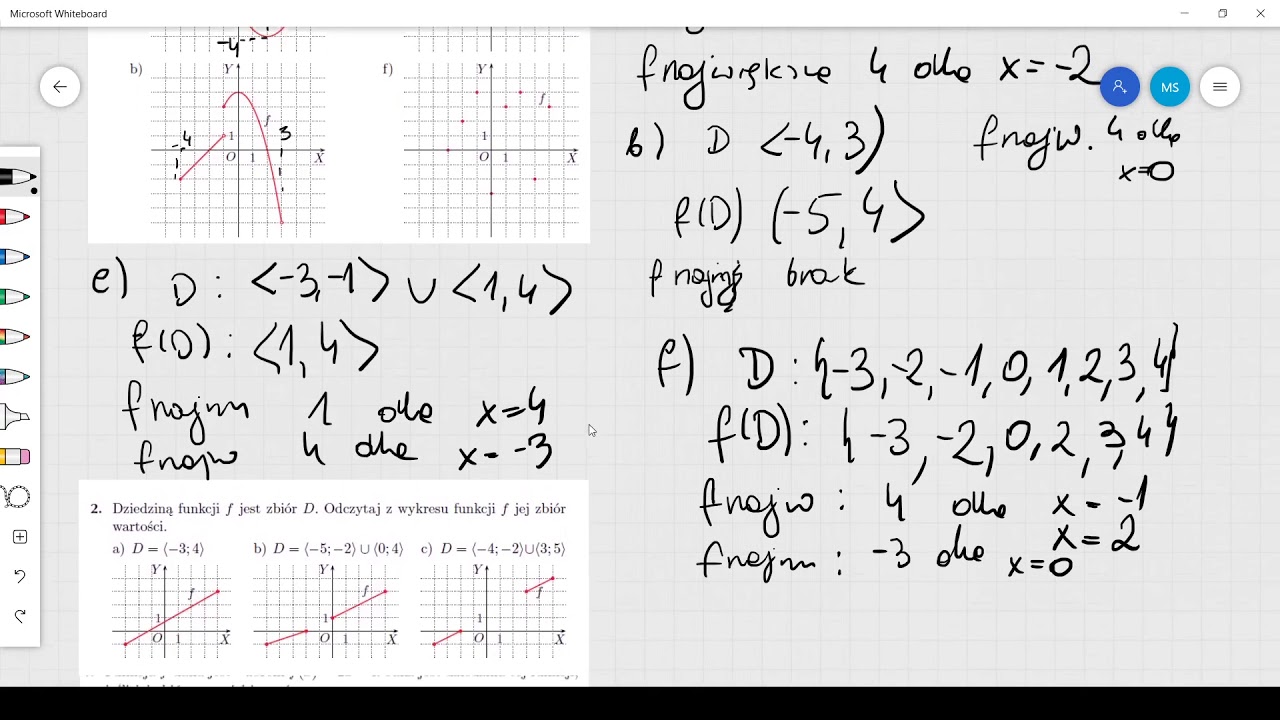 Microsoft Whiteboard
-4
b)
Y
f
-4
3
1
O
1
X
f)
Y
f
1
O
1
X
f największe 4 dla x = -2
MS
b) D <-4, 3) f najw. 4 dla
x=0
f(D) (-5, 4>
f najmj brak
e) D : <-3, -1> ∪ <1, 4>
f(D) : <1, 4>
f najmn 1 dla x=4
f najw 4 dla x = -3
f) D : {-3, -2, -1, 0, 1, 2, 3, 4}
f(D) : {-3, -2, 0, 2, 3, 4}
f najw : 4 dla x = -1
x = 2
f najmn : -3 dla x=0
2. Dziedziną funkcji f jest zbiór D. Odczytaj z wykresu funkcji f jej zbiór
wartości.
a) D = ⟨−3; 4⟩ b) D = ⟨−5; −2⟩ ∪ ⟨0; 4⟩ c) D = ⟨−4; −2⟩∪⟨3; 5⟩
Y
f
1
O
1
X
Y
f
1
O
1
X
Y
f
1
O
1
X